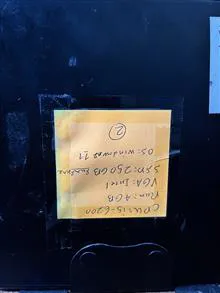 CPU: i5-6200
Ram: 4GB
VGA: Intel
SSD: 250GB
OS: Windows 11
2